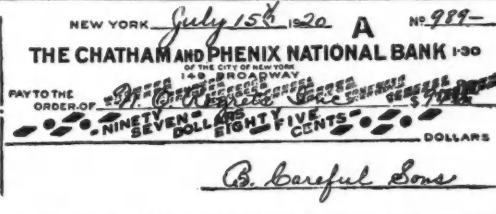 NEW YORK July 15th 1920 A No 989-
THE CHATHAM AND PHENIX NATIONAL BANK 1-30
OF THE CITY OF NEW YORK
149 BROADWAY
PAY TO THE
ORDER OF
NINETY SEVEN DOLLARS EIGHTY FIVE CENTS DOLLARS
B. Careful Sons